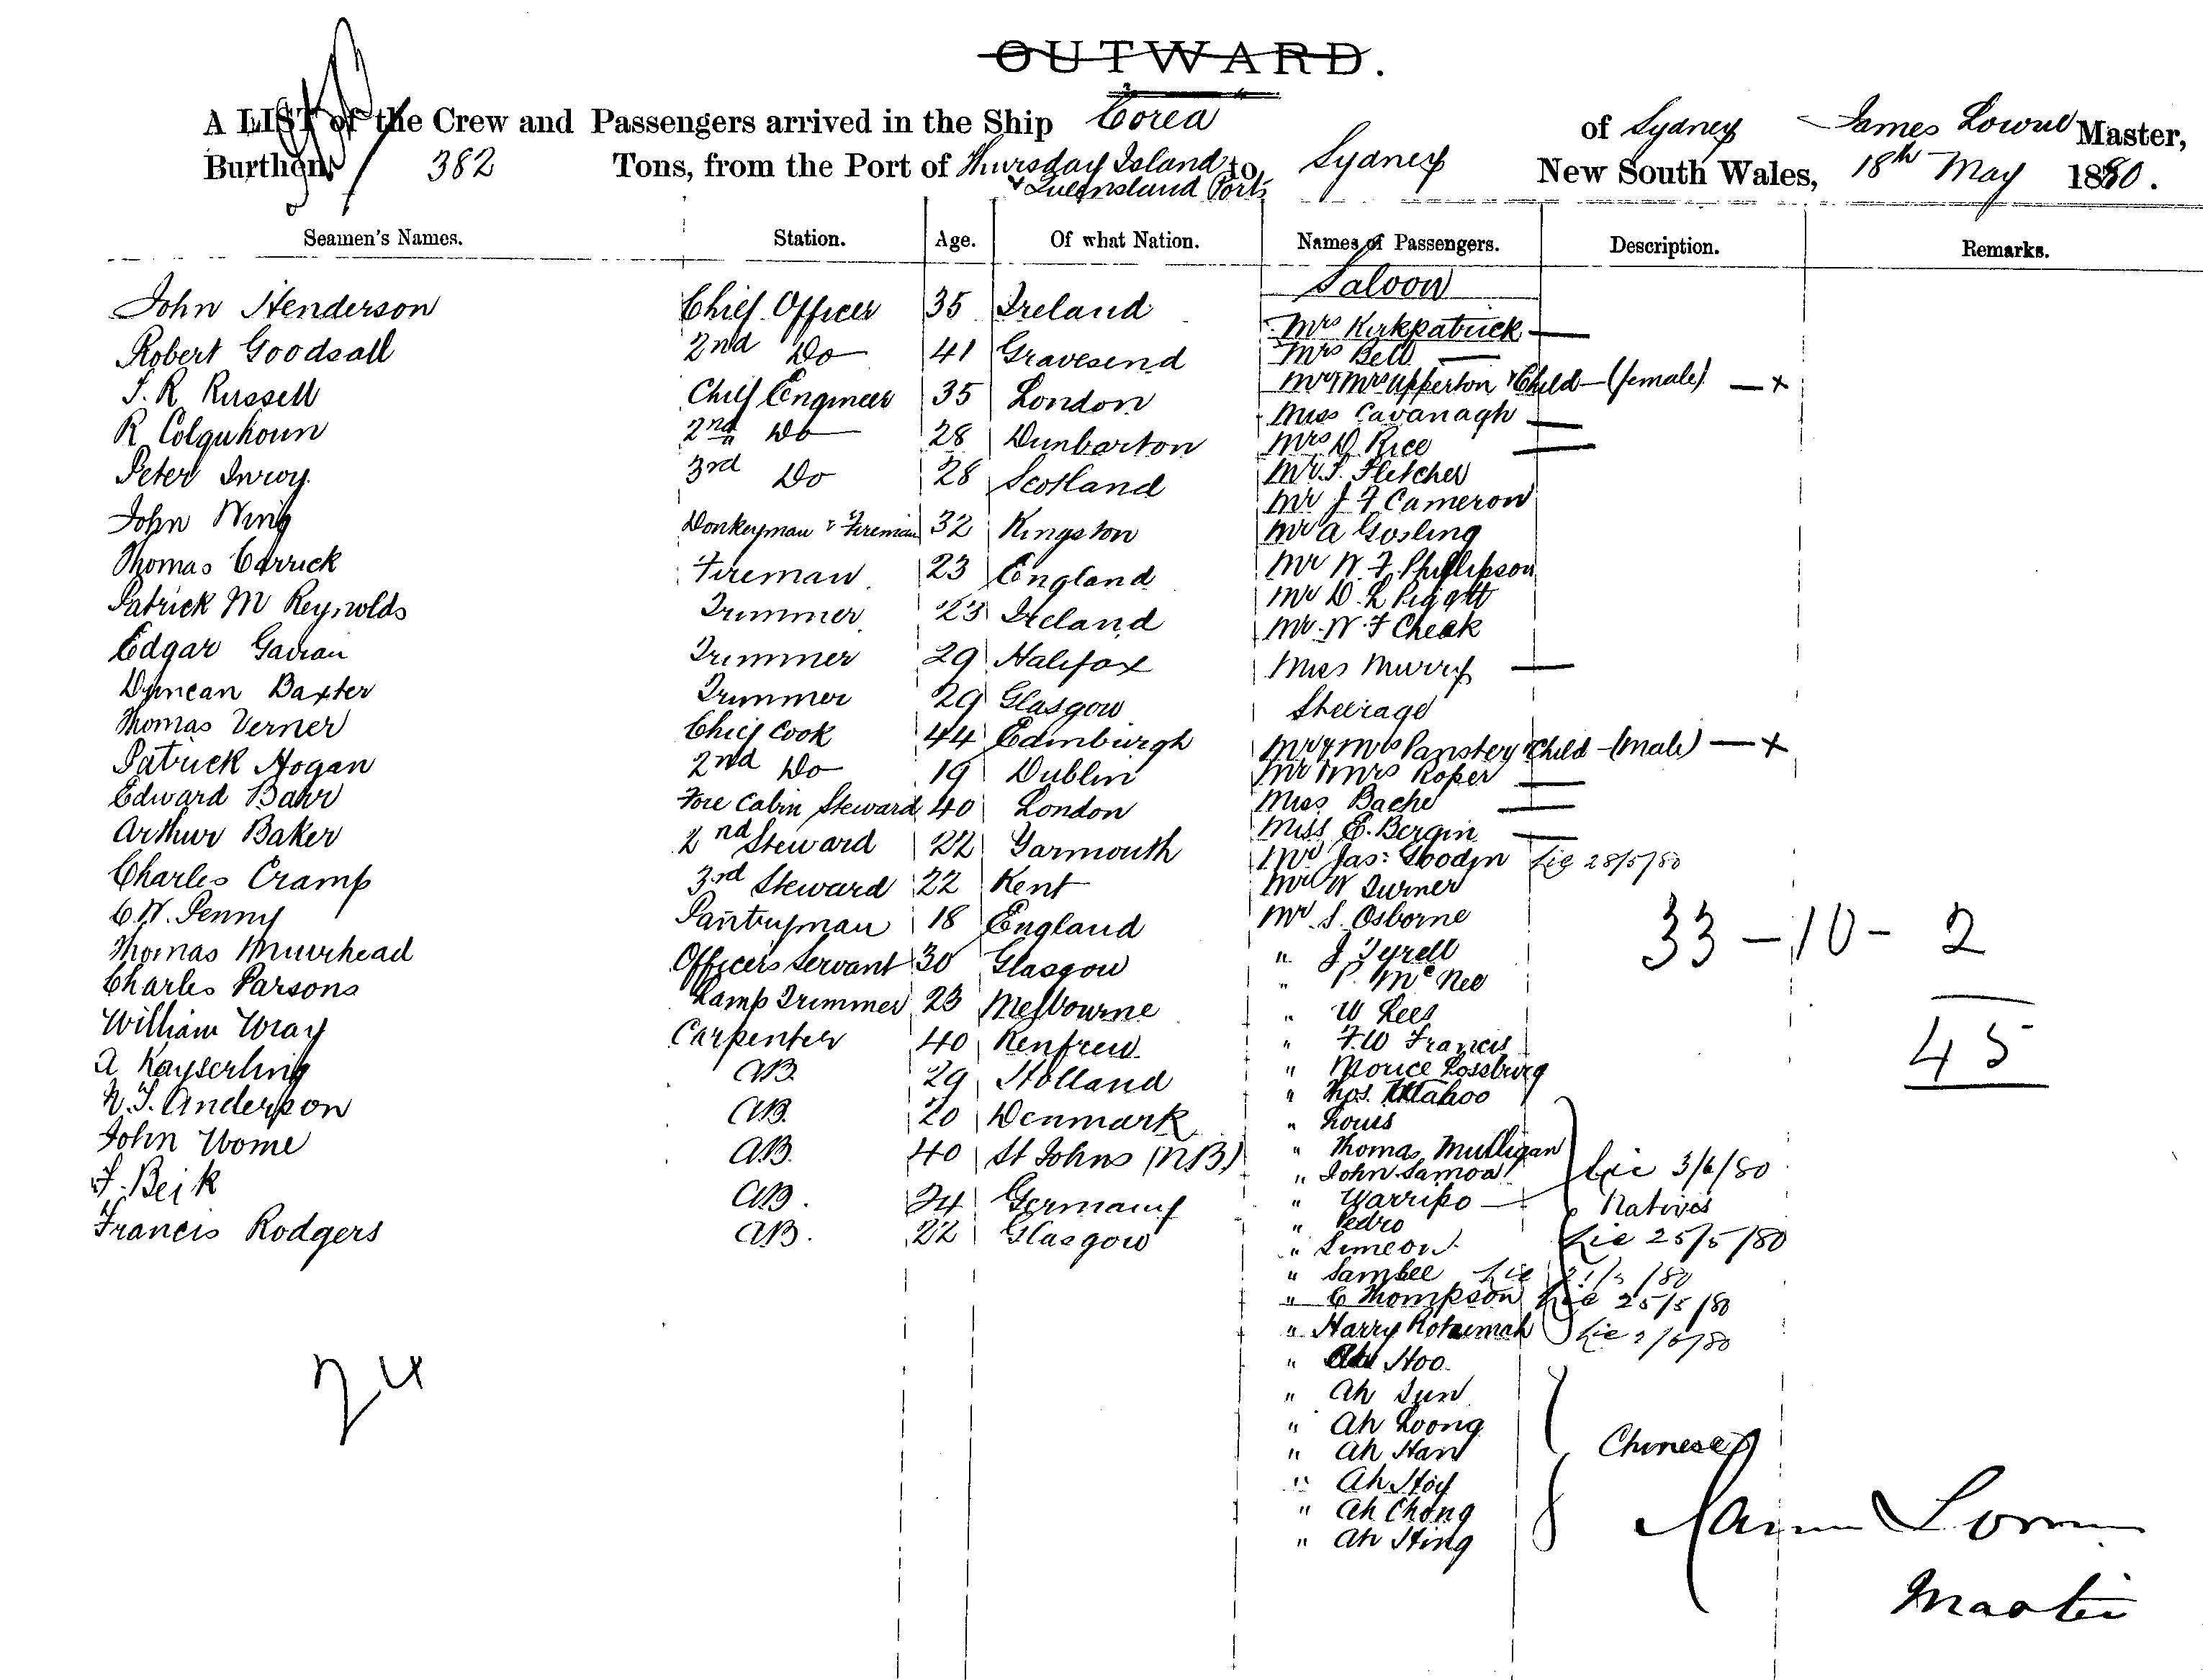 OUTWARD.
A LIST of the Crew and Passengers arrived in the Ship Corea of Sydney James Lowrie Master,
Burthen, 382 Tons, from the Port of Thursday Island & Queensland Ports to Sydney New South Wales, 18th May 1880.
Seamen's Names. Station. Age. Of what Nation. Names of Passengers. Description. Remarks.
Saloon
John Henderson Chief Officer 35 Ireland Mrs Kirkpatrick —
Robert Goodsall 2nd Do 41 Gravesend Mrs Bell —
J. R. Russell Chief Engineer 35 London Mr & Mrs Upperton & Child – (female) — x
Miss Cavanagh —
R Colquhoun 2nd Do 28 Dunbarton Mrs D. Rice —
Peter 3rd Do 28 Scotland Mr. J. Fletcher
Mr J F Cameron
John Wing Donkeyman & Fireman 32 Kingston Mr A Gosling
Thomas Carrick Fireman 23 England Mr W. F. Phillipson
Patrick M Reynolds Trimmer 23 Ireland Mr D. L Piggott
Mr. W. F Cheek
Edgar Trimmer 29 Halifax Miss Murry —
Duncan Baxter Trimmer 29 Glasgow Steerage
Thomas Verner Chief Cook 44 Edinburgh Mr & Mrs & Child – (male) — x
Patrick Hogan 2nd Do 19 Dublin Mr & Mrs Roper —
Edward Barr Fore Cabin Steward 40 London Miss Bache —
Arthur Baker 2nd Steward 22 Yarmouth Miss E. Bergin —
Mr Jas: Goodin Lic 28/5/80
Charles Cramp 3rd Steward 22 Kent Mr W Turner
C. W. Penny Pantryman 18 England Mr. S. Osborne
33 – 10 – 2
Thomas Muirhead Officers Servant 30 Glasgow " J. Tyrell
Charles Parsons Lamp Trimmer 23 Melbourne " P. McNee
" W Lees
William Wray Carpenter 40 Renfrew " F. W Francis
45
A Kayserling AB. 29 Holland " Morice Rossburg
" Thos.
N. J. Anderson AB. 20 Denmark " Louis
John Wome AB. 40 St Johns (NB) " Thomas Mulligan
" John Samoa Lic 3/6/80
F. Beik AB. 24 Germany " Warripo — Natives
" Pedro
Francis Rodgers AB. 22 Glasgow " Simeon Lic 25/5/80
" Sambee Lic /80
" C Thompson Lic 25/5/80
" Harry Rotumah Lic /80
24
" Ah Hoo.
" Ah Sun
" Ah Loong
" Ah Han Chinese
" Ah Hoy
" Ah Chong
" Ah Hing
James Lowrie
Master